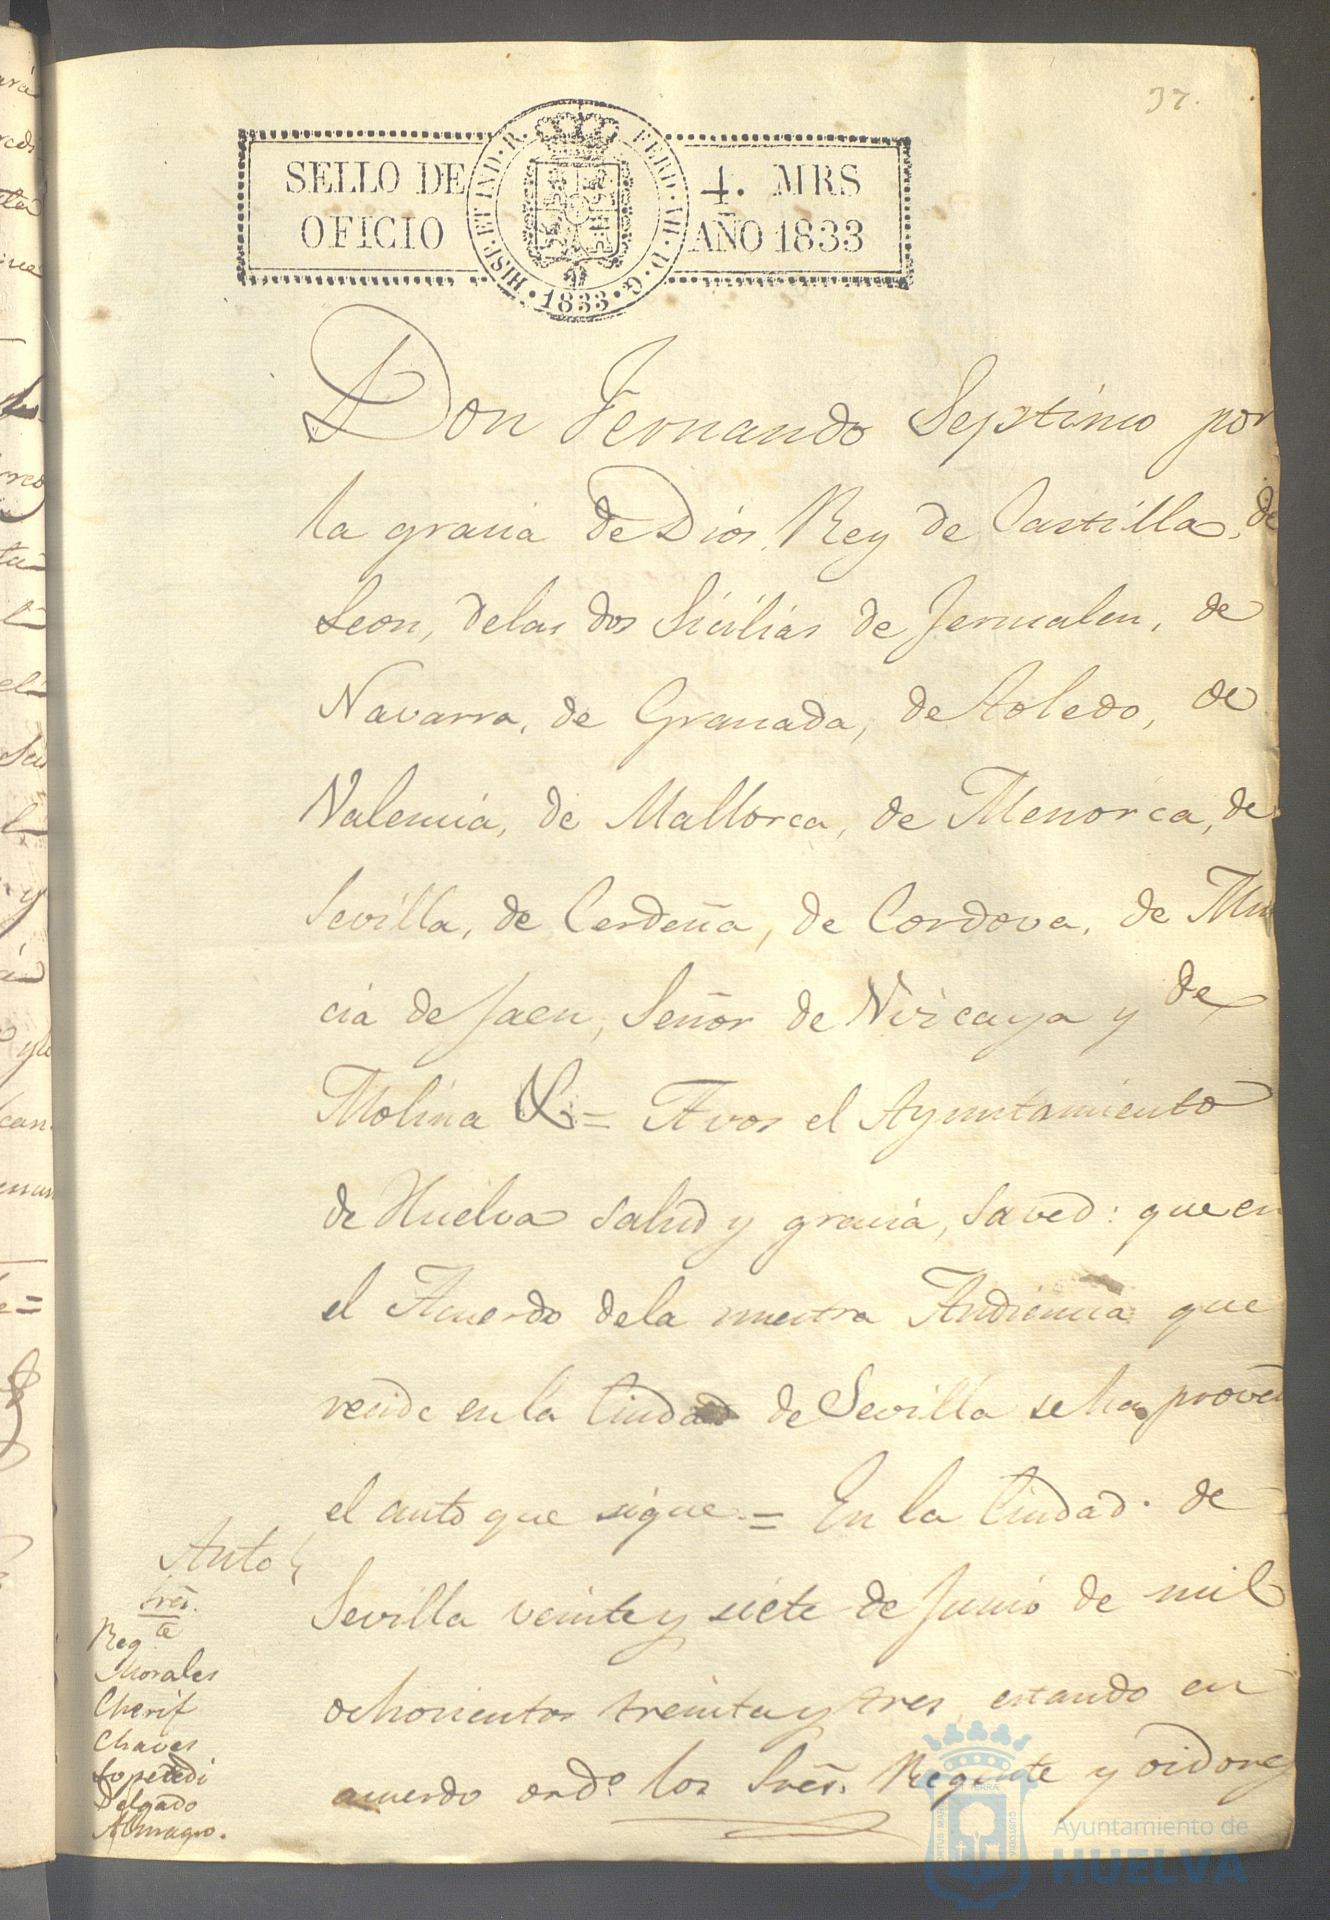 37.
SELLO DE
OFICIO
HISP. ET IND. R.
FERD. VII. D. G.
·1833·
4. MRS
AÑO 1833
Don Fernando Septimo por
la gracia de Dios, Rey de Castilla, de
Leon, delas dos Sicilias de Jerusalen, de
Navarra, de Granada, de Toledo, de
Valencia, de Mallorca, de Menorca, de
Sevilla, de Cerdeña, de Cordova, de Mur
cia de Jaen, Señor de Vizcaya y de
Molina &= A vos el Ayuntamiento
de Huelva salud y gracia, saved: que en
el Acuerdo dela nuestra Audiencia que
reside en la Ciudad de Sevilla se ha proveí
el auto que sigue = En la Ciudad de
Auto
Sevilla veinte y siete de Junio de mil
ochocientos treinta y tres estando en
acuerdo ordº los Sres. Regente y oidores
Sres.
Regte
Morales
Cherif
Chaves
Lopetedi
Delgado
Almagro.
Ayuntamiento de
HUELVA